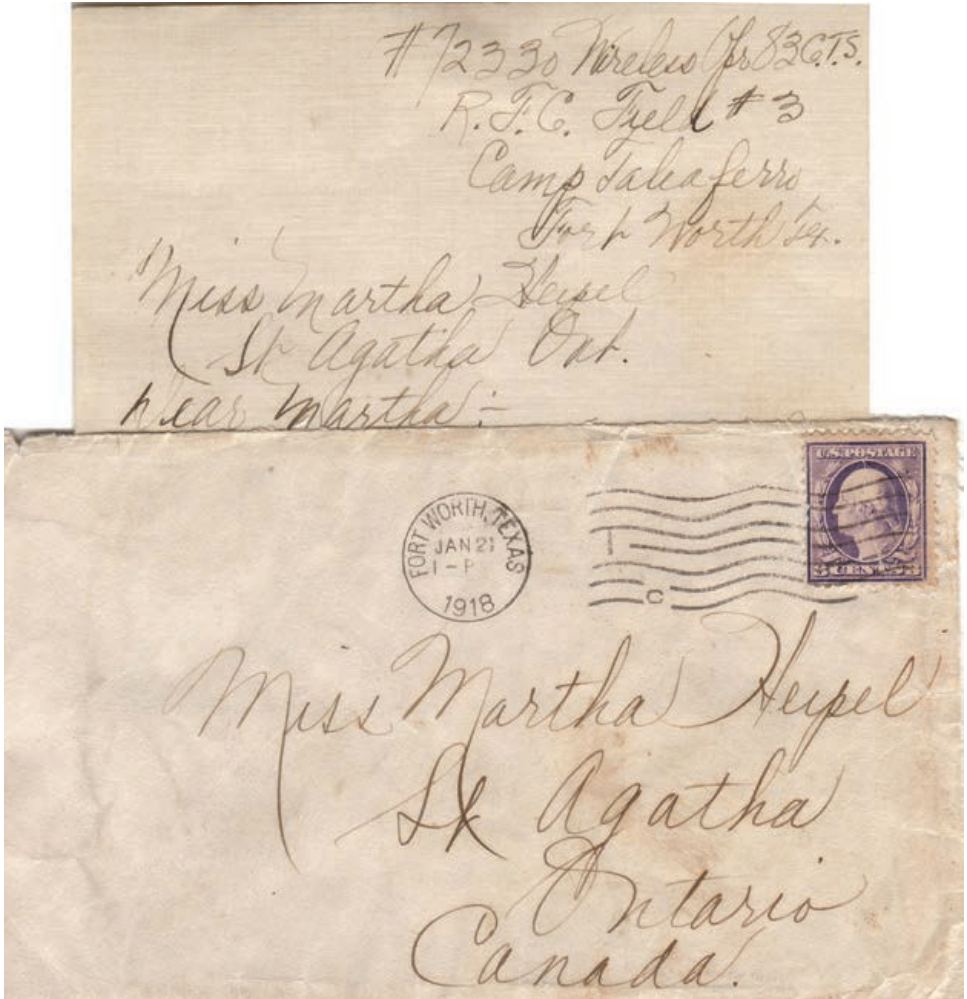 #72330 Wireless Opr 83 C.T.S.
R.F.C. Field #3
Camp Taliaferro
Fort Worth Tex.
Miss Martha Heipel
St Agatha Ont.
Dear Martha:-
U.S. POSTAGE
3 CENTS 3
FORT WORTH, TEXAS
JAN 21
1-P
1918
C
Miss Martha Heipel
St Agatha
Ontario
Canada.